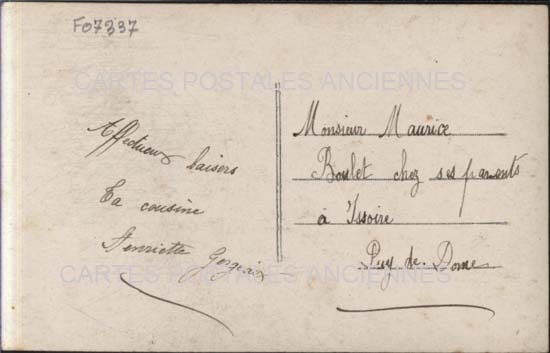 F07337
CARTES POSTALES ANCIENNES
Affectueux baisers
Ta cousine
Henriette
Monsieur Maurice
Boulet chez ses parents
à Issoire
Puy-de-Dome
CARTES POSTALES ANCIENNES